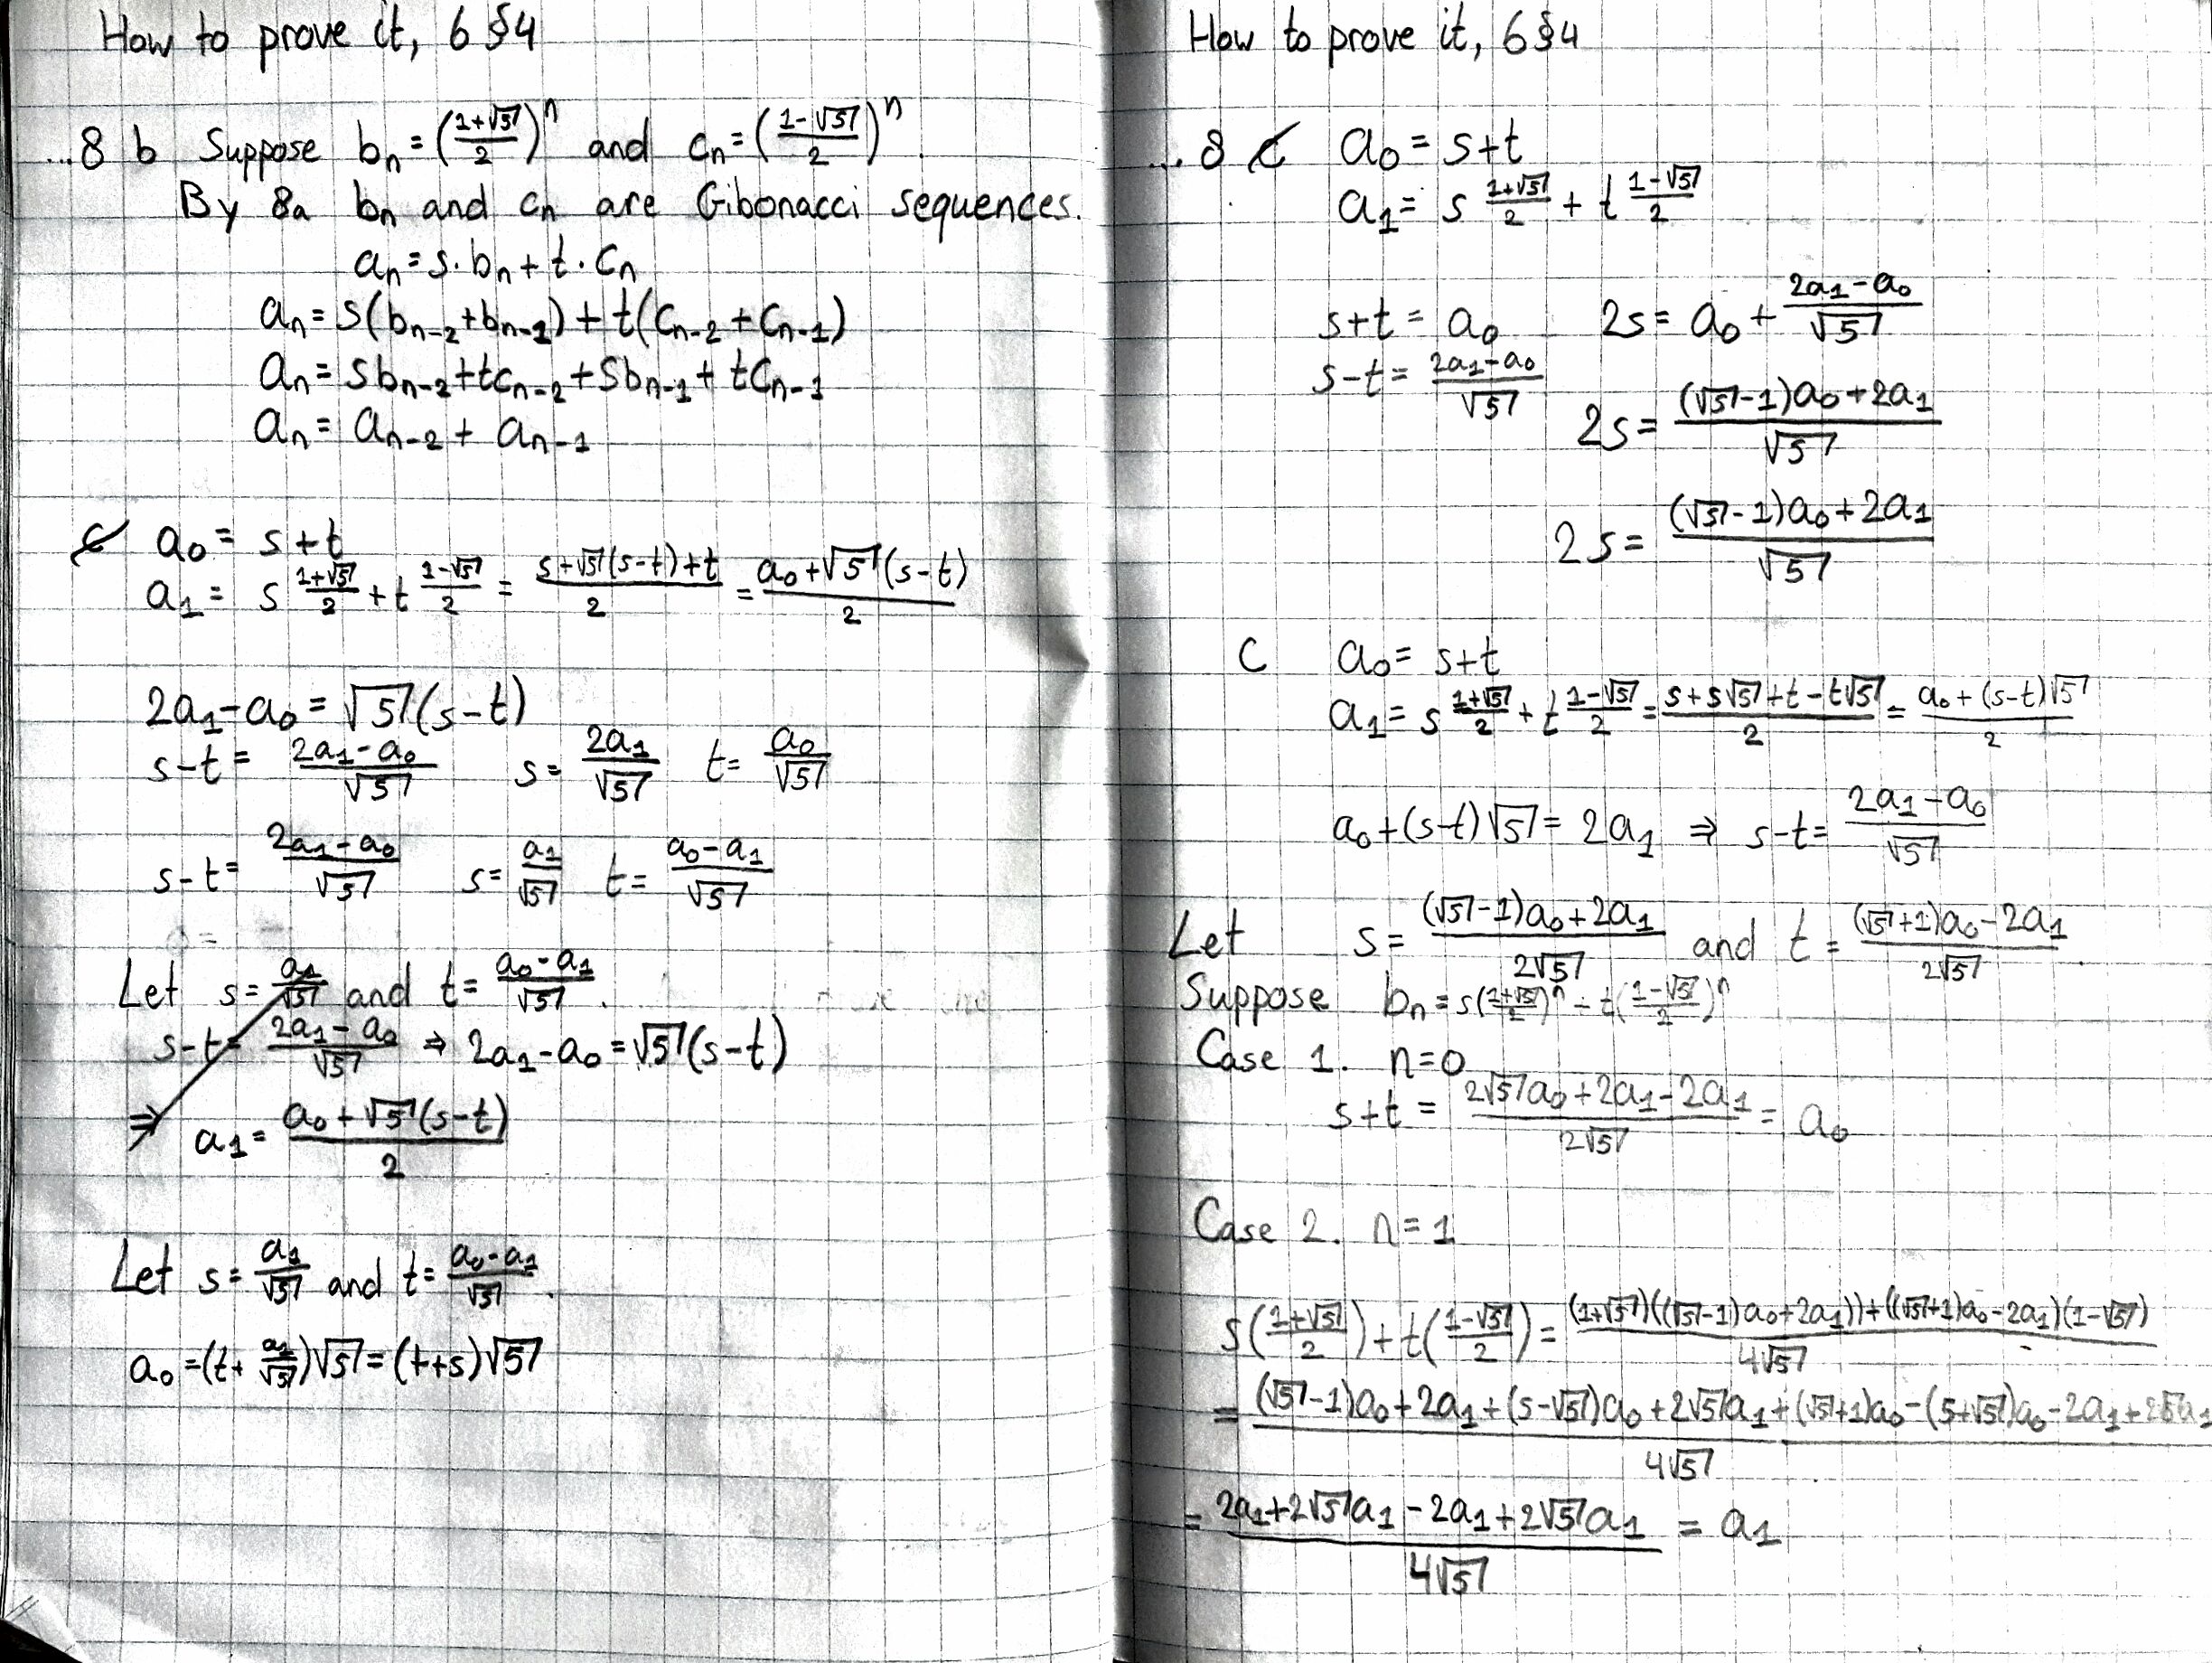 How to prove it, 6 §4
...8 b Suppose bₙ = ((1+√5)/2)ⁿ and cₙ = ((1-√5)/2)ⁿ.
By 8a bₙ and cₙ are Gibonacci sequences.
aₙ = s·bₙ + t·cₙ
aₙ = s(bₙ₋₂+bₙ₋₁) + t(cₙ₋₂+cₙ₋₁)
aₙ = sbₙ₋₂+tcₙ₋₂+sbₙ₋₁+tcₙ₋₁
aₙ = aₙ₋₂ + aₙ₋₁
c a₀ = s+t
a₁ = s (1+√5)/2 + t (1-√5)/2 = (s+√5(s-t)+t)/2 = (a₀+√5(s-t))/2
2a₁-a₀ = √5(s-t)
s-t = (2a₁-a₀)/√5 s = 2a₁/√5 t = a₀/√5
s-t = (2a₁-a₀)/√5 s = a₁/√5 t = (a₀-a₁)/√5
Let s = a₁/√5 and t = (a₀-a₁)/√5.
s-t = (2a₁-a₀)/√5 ⇒ 2a₁-a₀ = √5(s-t)
⇒ a₁ = (a₀+√5(s-t))/2
Let s = a₁/√5 and t = (a₀-a₁)/√5.
a₀ = (t+ a₁/√5)√5 = (t+s)√5
How to prove it, 6 §4
...8 c a₀ = s+t
a₁ = s (1+√5)/2 + t (1-√5)/2
s+t = a₀ 2s = a₀ + (2a₁-a₀)/√5
s-t = (2a₁-a₀)/√5
2s = ((√5-1)a₀+2a₁)/√5
2s = ((√5-1)a₀+2a₁)/√5
c a₀ = s+t
a₁ = s (1+√5)/2 + t (1-√5)/2 = (s+s√5+t-t√5)/2 = (a₀+(s-t)√5)/2
a₀+(s-t)√5 = 2a₁ ⇒ s-t = (2a₁-a₀)/√5
Let s = ((√5-1)a₀+2a₁)/(2√5) and t = ((√5+1)a₀-2a₁)/(2√5).
Suppose bₙ = s((1+√5)/2)ⁿ + t((1-√5)/2)ⁿ
Case 1. n=0
s+t = (2√5a₀+2a₁-2a₁)/(2√5) = a₀
Case 2. n=1
s((1+√5)/2)+t((1-√5)/2) = ((1+√5)((√5-1)a₀+2a₁))+((√5+1)a₀-2a₁)(1-√5)/(4√5)
= ((√5-1)a₀+2a₁+(5-√5)a₀+2√5a₁+(√5+1)a₀-(5+√5)a₀-2a₁+2√5a₁)/(4√5)
= (2a₁+2√5a₁-2a₁+2√5a₁)/(4√5) = a₁